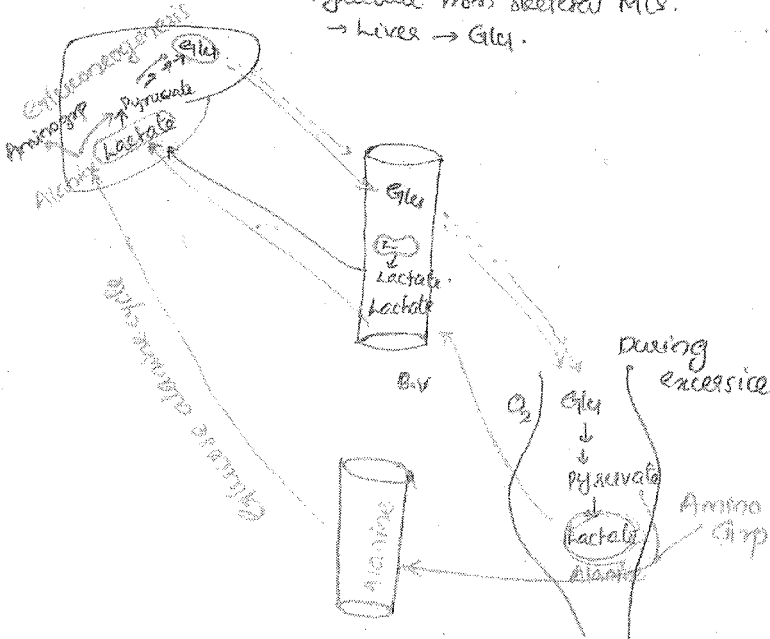 from skeletal Mls.
→ Liver → Glu.
Gluconeogenesis
Glu
Pyruvate
Aminogrp
Lactate
Alanine
Glu
Lactate.
Lactate
B.V
Glucose alanine cycle
During
excersice
O₂
Glu
Pyruvate
Lactate
Alanine
Amino
Grp
Alanine